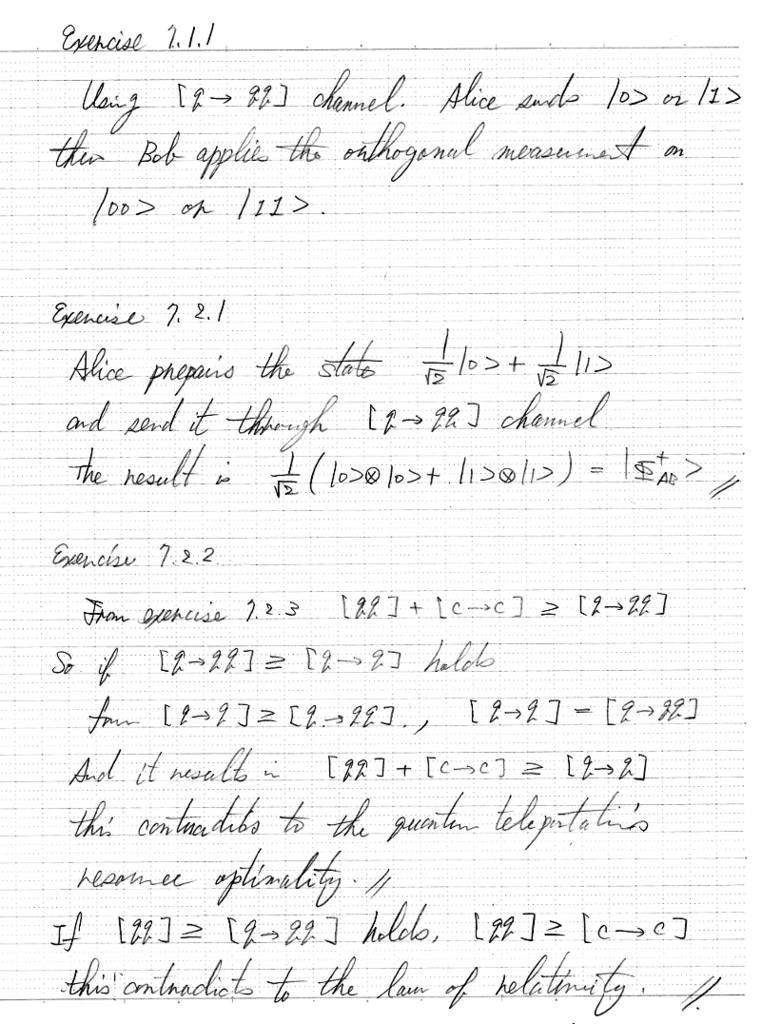 Exercise 7.1.1
Using [q→qq] channel. Alice sends |0> or |1>
then Bob applies the orthogonal measurement on
|00> or |11>.
Exercise 7.2.1
Alice prepairs the state 1/√2 |0> + 1/√2 |1>
and send it through [q→qq] channel
The result is 1/√2 (|0>⊗|0> + |1>⊗|1>) = |Φ⁺_AB> //
Exercise 7.2.2
From exercise 7.2.3 [qq] + [c→c] ≥ [q→qq]
So if [q→qq] ≥ [q→q] holds
from [q→q] ≥ [q→qq]., [q→q] = [q→qq]
And it results in [qq] + [c→c] ≥ [q→q]
this contradicts to the quantum teleportation's
resource optimality. //
If [qq] ≥ [q→qq] holds, [qq] ≥ [c→c]
this contradicts to the law of relativity. //